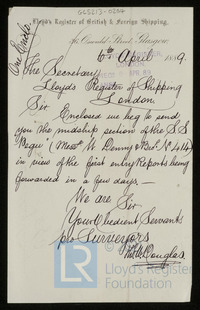 GLS213-0254
Lloyd's Register of British & Foreign Shipping,
One Enclo.
Oswald Street, Glasgow
6th April 1889.
The Secretary
Lloyds Register of Shipping
London
Sir
Enclosed we beg to send
you the midship section of the S.S.
"Pegu" (Messrs W. Denny & Bros No 414)
in view of the first entry Reports being
forwarded in a few days —
We are Sir
Your Obedient Servants
pro Surveyors
Douglas
Lloyd's Register
Foundation